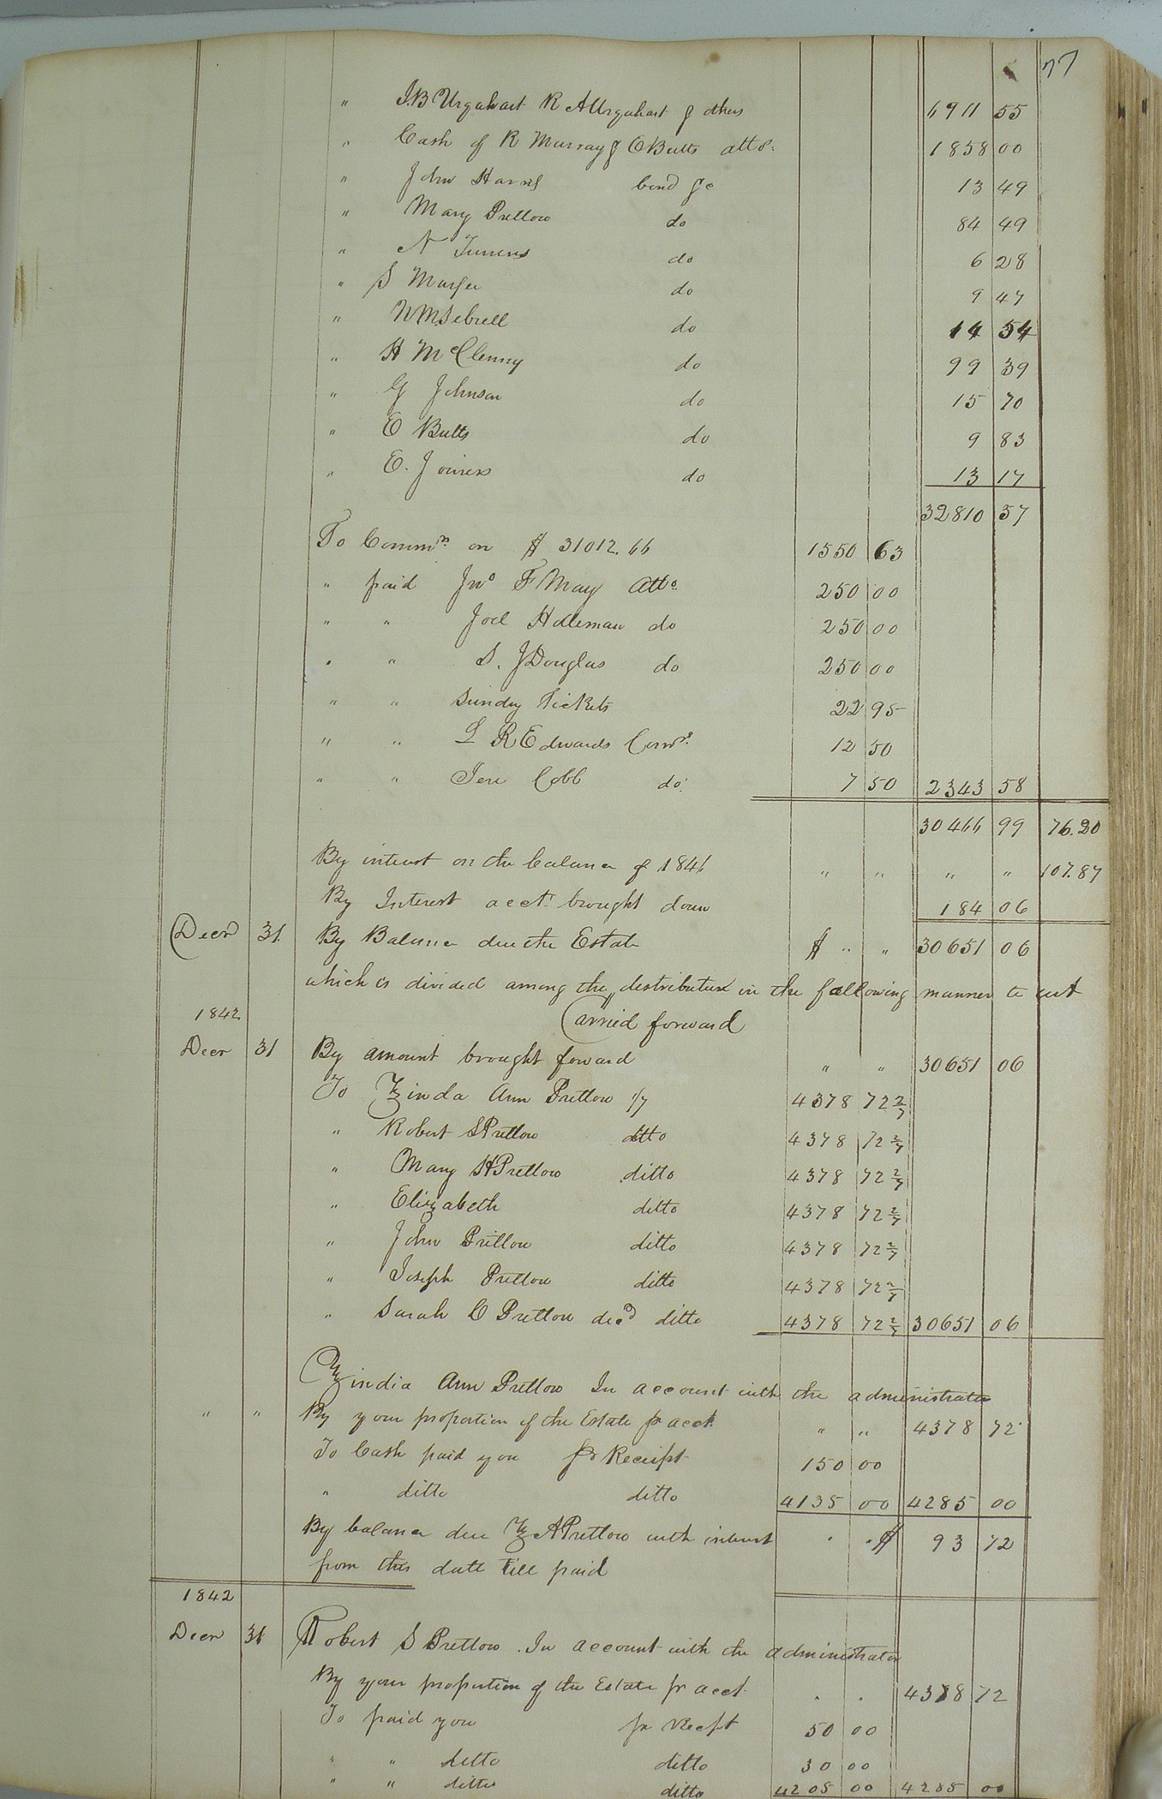 77
" J.B Urquhart R A Urquhart & others 6911 55
" Cash of R Murray & C Butts atto. 1858 00
" John Harris bond &c 13 49
" Mary Pretlow do 84 49
" N Turners do 6 28
" S do 9 47
" W M Sebrell do 14 54
" H McClenny do 99 39
" G Johnson do 15 70
" E Butts do 9 83
" E. Joiners do 13 17
32810 57
To Commn. on $ 31012.66 1550 63
" paid Jno F May Atto. 250 00
" " Joel Holleman do 250 00
" " S. J Douglas do 250 00
" " Sundry Tickets 22 95
" " L R Edwards Comr. 12 50
" " Jere Cobb do. 7 50 2343 58
30466 99 76.20
By interest on the balance of 1846 " " " " 107.87
By Interest acct. brought down 184 06
Decr 31 By Balance due the Estate $ " " 30651 06
which is divided among the distributees in the following manner to wit
1842 Carried forward
Decr 31 By amount brought forward " " 30651 06
To Zinda Ann Pretlow 1/7 4378 72 2/7
" Robert S Pretlow ditto 4378 72 2/7
" Mary H Pretlow ditto 4378 72 2/7
" Elizabeth ditto 4378 72 2/7
" John Pretlow ditto 4378 72 2/7
" Joseph Pretlow ditto 4378 72 2/7
" Sarah C Pretlow decd ditto 4378 72 2/7 30651 06
Zindia Ann Pretlow In account with the administrator
" " By your proportion of the Estate pr acct. " " 4378 72
To Cash paid you pr Receipt 150 00
" ditto ditto 4135 00 4285 00
By balance due Z A Pretlow with interest " " $ 93 72
from this date till paid
1842
Decr 31 Robert S Pretlow. In account with the administrator
By your proportion of the Estate pr acct. . . 4378 72
To paid you pr Recpt 50 00
" " ditto ditto 30 00
" " ditto ditto 4205 00 4285 00